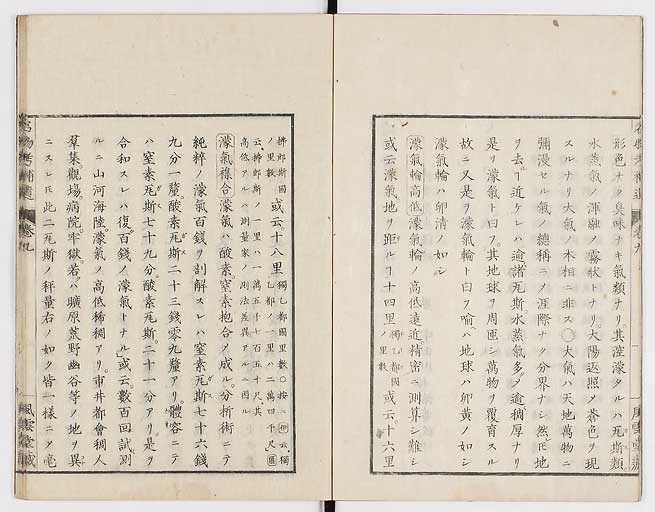 形色ナク臭味ナキ氣類ナリ。其溟濛タルハ瓦斯類
水蒸氣ノ渾融ノ霧狀トナリ。太陽返照ノ蒼色ヲ現
スルナリ大氣ノ本相ニ非ス〇大氣ハ天地萬物ニ
彌漫セル氣ノ總稱ニノ涯際ナク分界ナシ然𪜈地
ヲ去ヿ近ケレハ逾諸瓦斯水蒸氣多ク逾稠厚ナリ
是ヲ濛氣ト曰フ。其地球ヲ周匝シ萬物ヲ覆育スル
故ニ又是ヲ濛氣輪ト曰フ喩ハ地球ハ卵黄ノ如シ
濛氣輪ハ卵清ノ如シ
濛氣輪高低濛氣輪ノ高低遠近精密ニ測算シ難シ
或云濛氣地ヲ距ルヿ十四里獨乙都國ノ里數或云。十六里
拂郎斯國ノ里數或云十八里獨乙都國里數〇按ニ印云獨乙都ノ一里ハ二萬四千尺圓
云。拂郎斯ノ一里ハ一萬五千七百五十尺。其高低アルハ測量家ノ測法差異アルニ因ル
濛氣襍合濛氣ハ酸素窒素抱合ノ成ル。分析術ニテ
純粹ノ濛氣百錢ヲ剖解スレハ窒素瓦斯七十六錢
九分一釐。酸素瓦斯二十三錢零九釐アリ。體容ニテ
ハ窒素瓦斯七十九分。酸素瓦斯二十一分アリ。是ヲ
合和スレハ復百錢ノ濛氣トナル」或云數百回試測
ルニ山河海陸濛氣ノ高低稀稠アリ。市井都會稠人
羣集觀場病院牢獄若ハ曠原荒野幽谷等ノ地ヲ異
ニスレ𪜈此二瓦斯ノ秤量右ノ如ク皆一樣ニノ毫
風雲堂藏